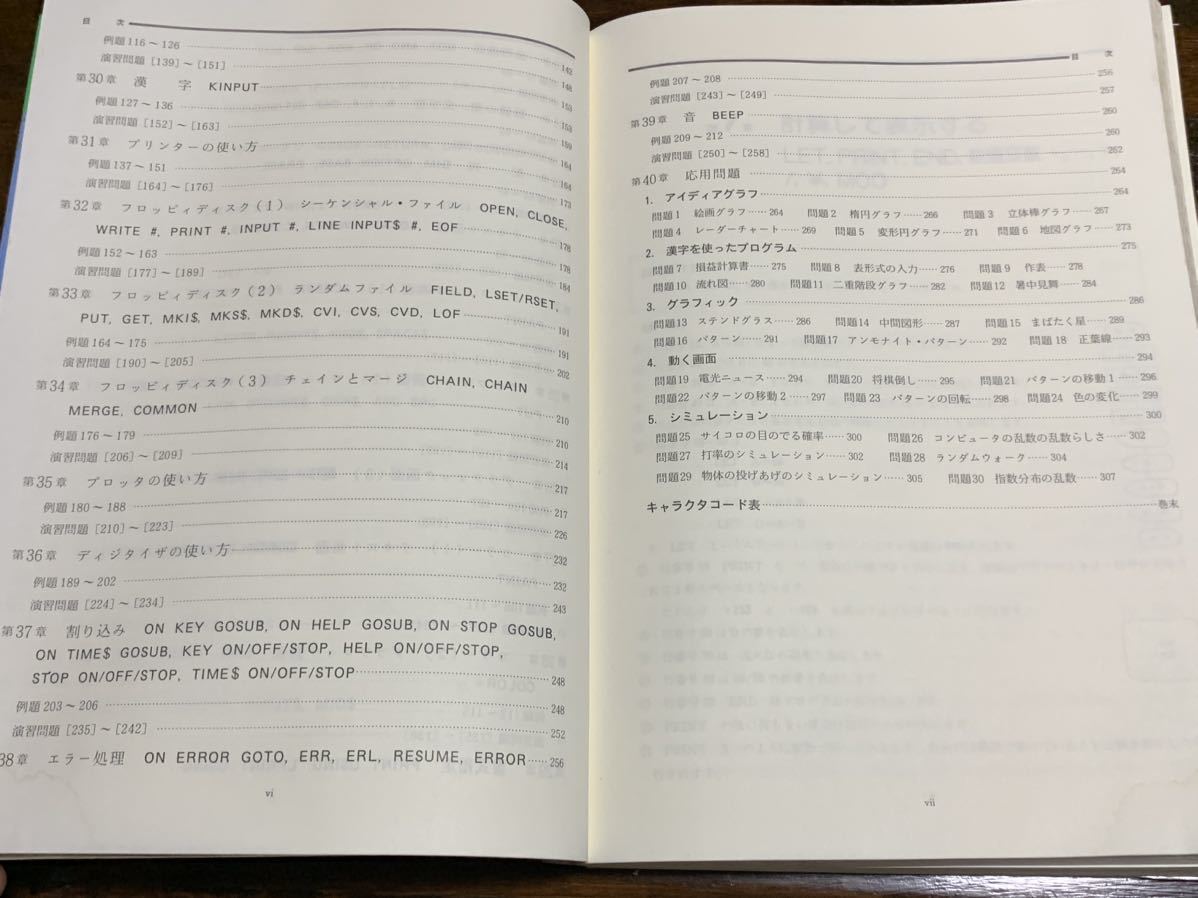 目　次
例題116～126 142
演習問題［139］～［151］ 148
第30章　漢　字　KINPUT 153
例題127～136 153
演習問題［152］～［163］ 159
第31章　プリンターの使い方 164
例題137～151 164
演習問題［164］～［176］ 173
第32章　フロッピィディスク(1)　シーケンシャル・ファイル　OPEN, CLOSE,
WRITE #, PRINT #, INPUT #, LINE INPUT$ #, EOF 178
例題152～163 178
演習問題［177］～［189］ 184
第33章　フロッピィディスク(2)　ランダムファイル　FIELD, LSET/RSET,
PUT, GET, MKI$, MKS$, MKD$, CVI, CVS, CVD, LOF 191
例題164～175 191
演習問題［190］～［205］ 202
第34章　フロッピィディスク(3)　チェインとマージ　CHAIN, CHAIN
MERGE, COMMON 210
例題176～179 210
演習問題［206］～［209］ 214
第35章　プロッタの使い方 217
例題180～188 217
演習問題［210］～［223］ 226
第36章　ディジタイザの使い方 232
例題189～202 232
演習問題［224］～［234］ 243
第37章　割り込み　ON KEY GOSUB, ON HELP GOSUB, ON STOP GOSUB,
ON TIME$ GOSUB, KEY ON/OFF/STOP, HELP ON/OFF/STOP,
STOP ON/OFF/STOP, TIME$ ON/OFF/STOP 248
例題203～206 248
演習問題［235］～［242］ 252
38章　エラー処理　ON ERROR GOTO, ERR, ERL, RESUME, ERROR……256
vi
目　次
例題207～208 256
演習問題［243］～［249］ 257
第39章　音　BEEP 260
例題209～212 260
演習問題［250］～［258］ 262
第40章　応用問題 264
1. アイディアグラフ 264
問題1　絵画グラフ……264　問題2　楕円グラフ……266　問題3　立体棒グラフ……267
問題4　レーダーチャート……269　問題5　変形円グラフ……271　問題6　地図グラフ……273
2. 漢字を使ったプログラム 275
問題7　損益計算書……275　問題8　表形式の入力……276　問題9　作表……278
問題10　流れ図……280　問題11　二重階段グラフ……282　問題12　暑中見舞……284
3. グラフィック 286
問題13　ステンドグラス……286　問題14　中間図形……287　問題15　まばたく星……289
問題16　パターン……291　問題17　アンモナイト・パターン……292　問題18　正葉線……293
4. 動く画面 294
問題19　電光ニュース……294　問題20　将棋倒し……295　問題21　パターンの移動1……296
問題22　パターンの移動2……297　問題23　パターンの回転……298　問題24　色の変化……299
5. シミュレーション 300
問題25　サイコロの目のでる確率……300　問題26　コンピュータの乱数の乱数らしさ……302
問題27　打率のシミュレーション……302　問題28　ランダムウォーク……304
問題29　物体の投げあげのシミュレーション……305　問題30　指数分布の乱数……307
キャラクタコード表 巻末
vii